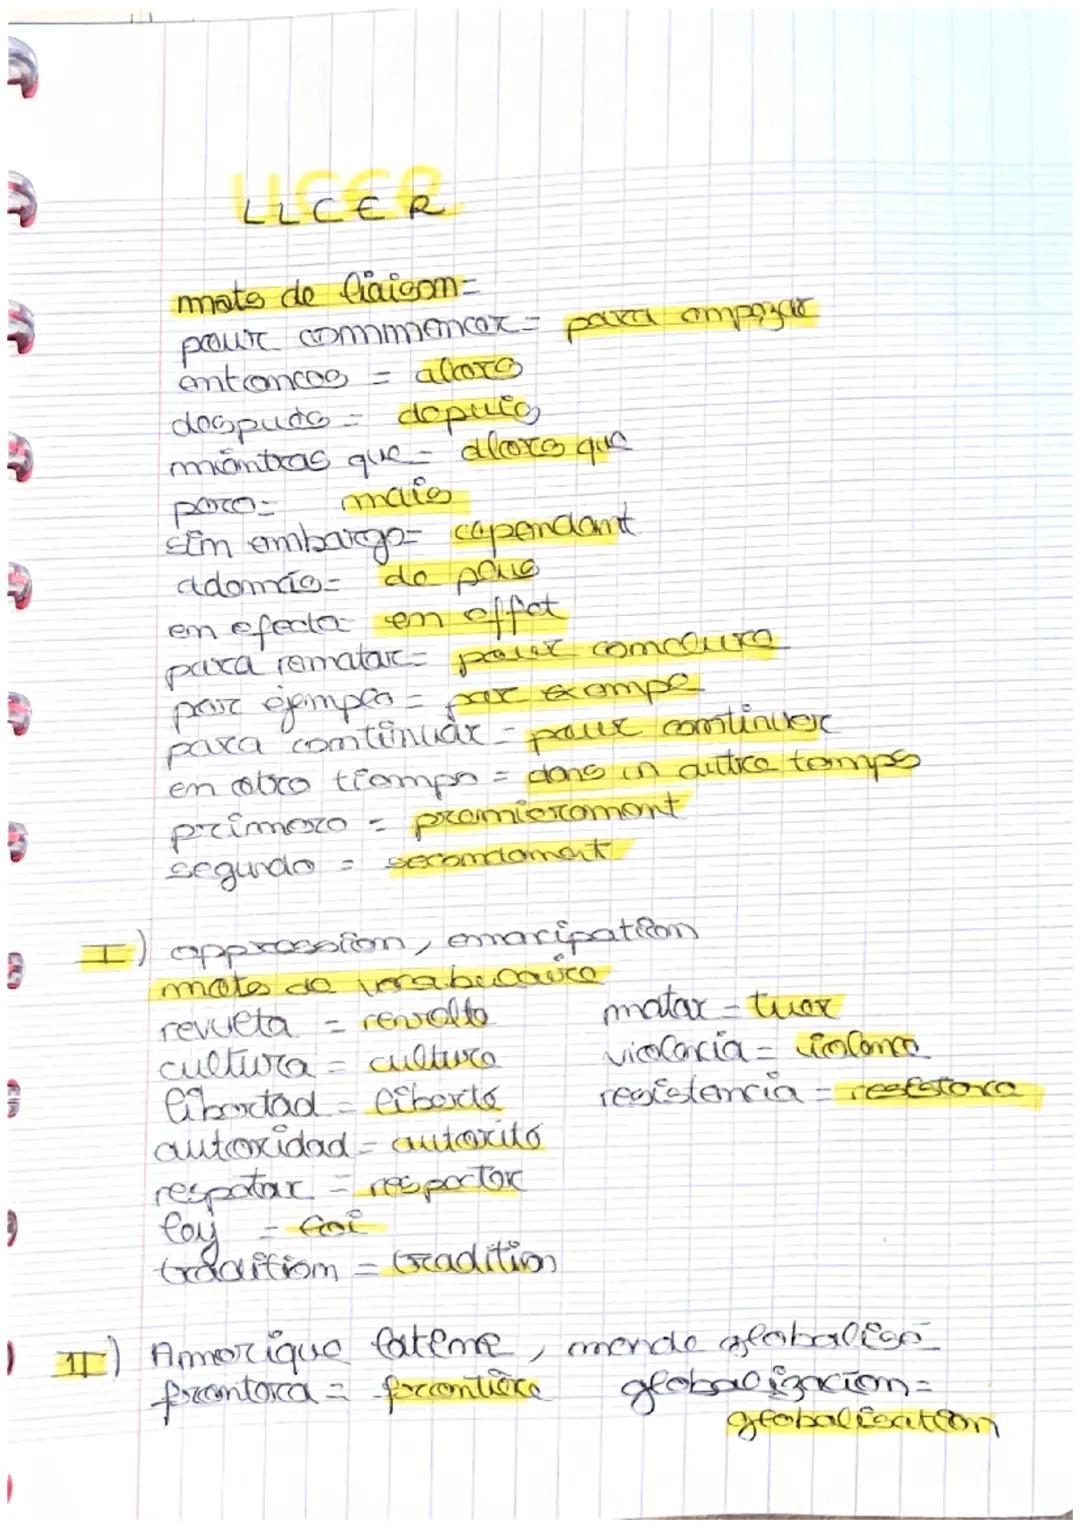 LLCER
mots de liaison=
pour commencer = para empezar
entonces = alors
despues = depuis
mientras que = alors que
pero = mais
sin embargo = cependant
ademas = de plus
en efecto en effet
para rematar = pour conclure
por ejemplo = par exemple
para continuar - pour continuer
en otro tiempo = dans un autre temps
primero = premierement
segundo = secondement
I) oppression, emancipation
mots de vocabulaire
revuelta = revolte matar = tuer
cultura = culture violencia = violence
libertad = liberté resistencia = resistance
autoridad = autorité
respetar = respecter
ley = loi
tradition = tradition
II) Amerique latine, monde globalisé
frontera = frontière globalizacion =
globalisation